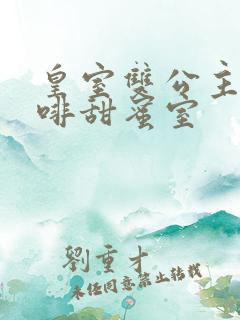 皇室雙公主
啡甜蜜室
劉重才
未經同意禁止轉載